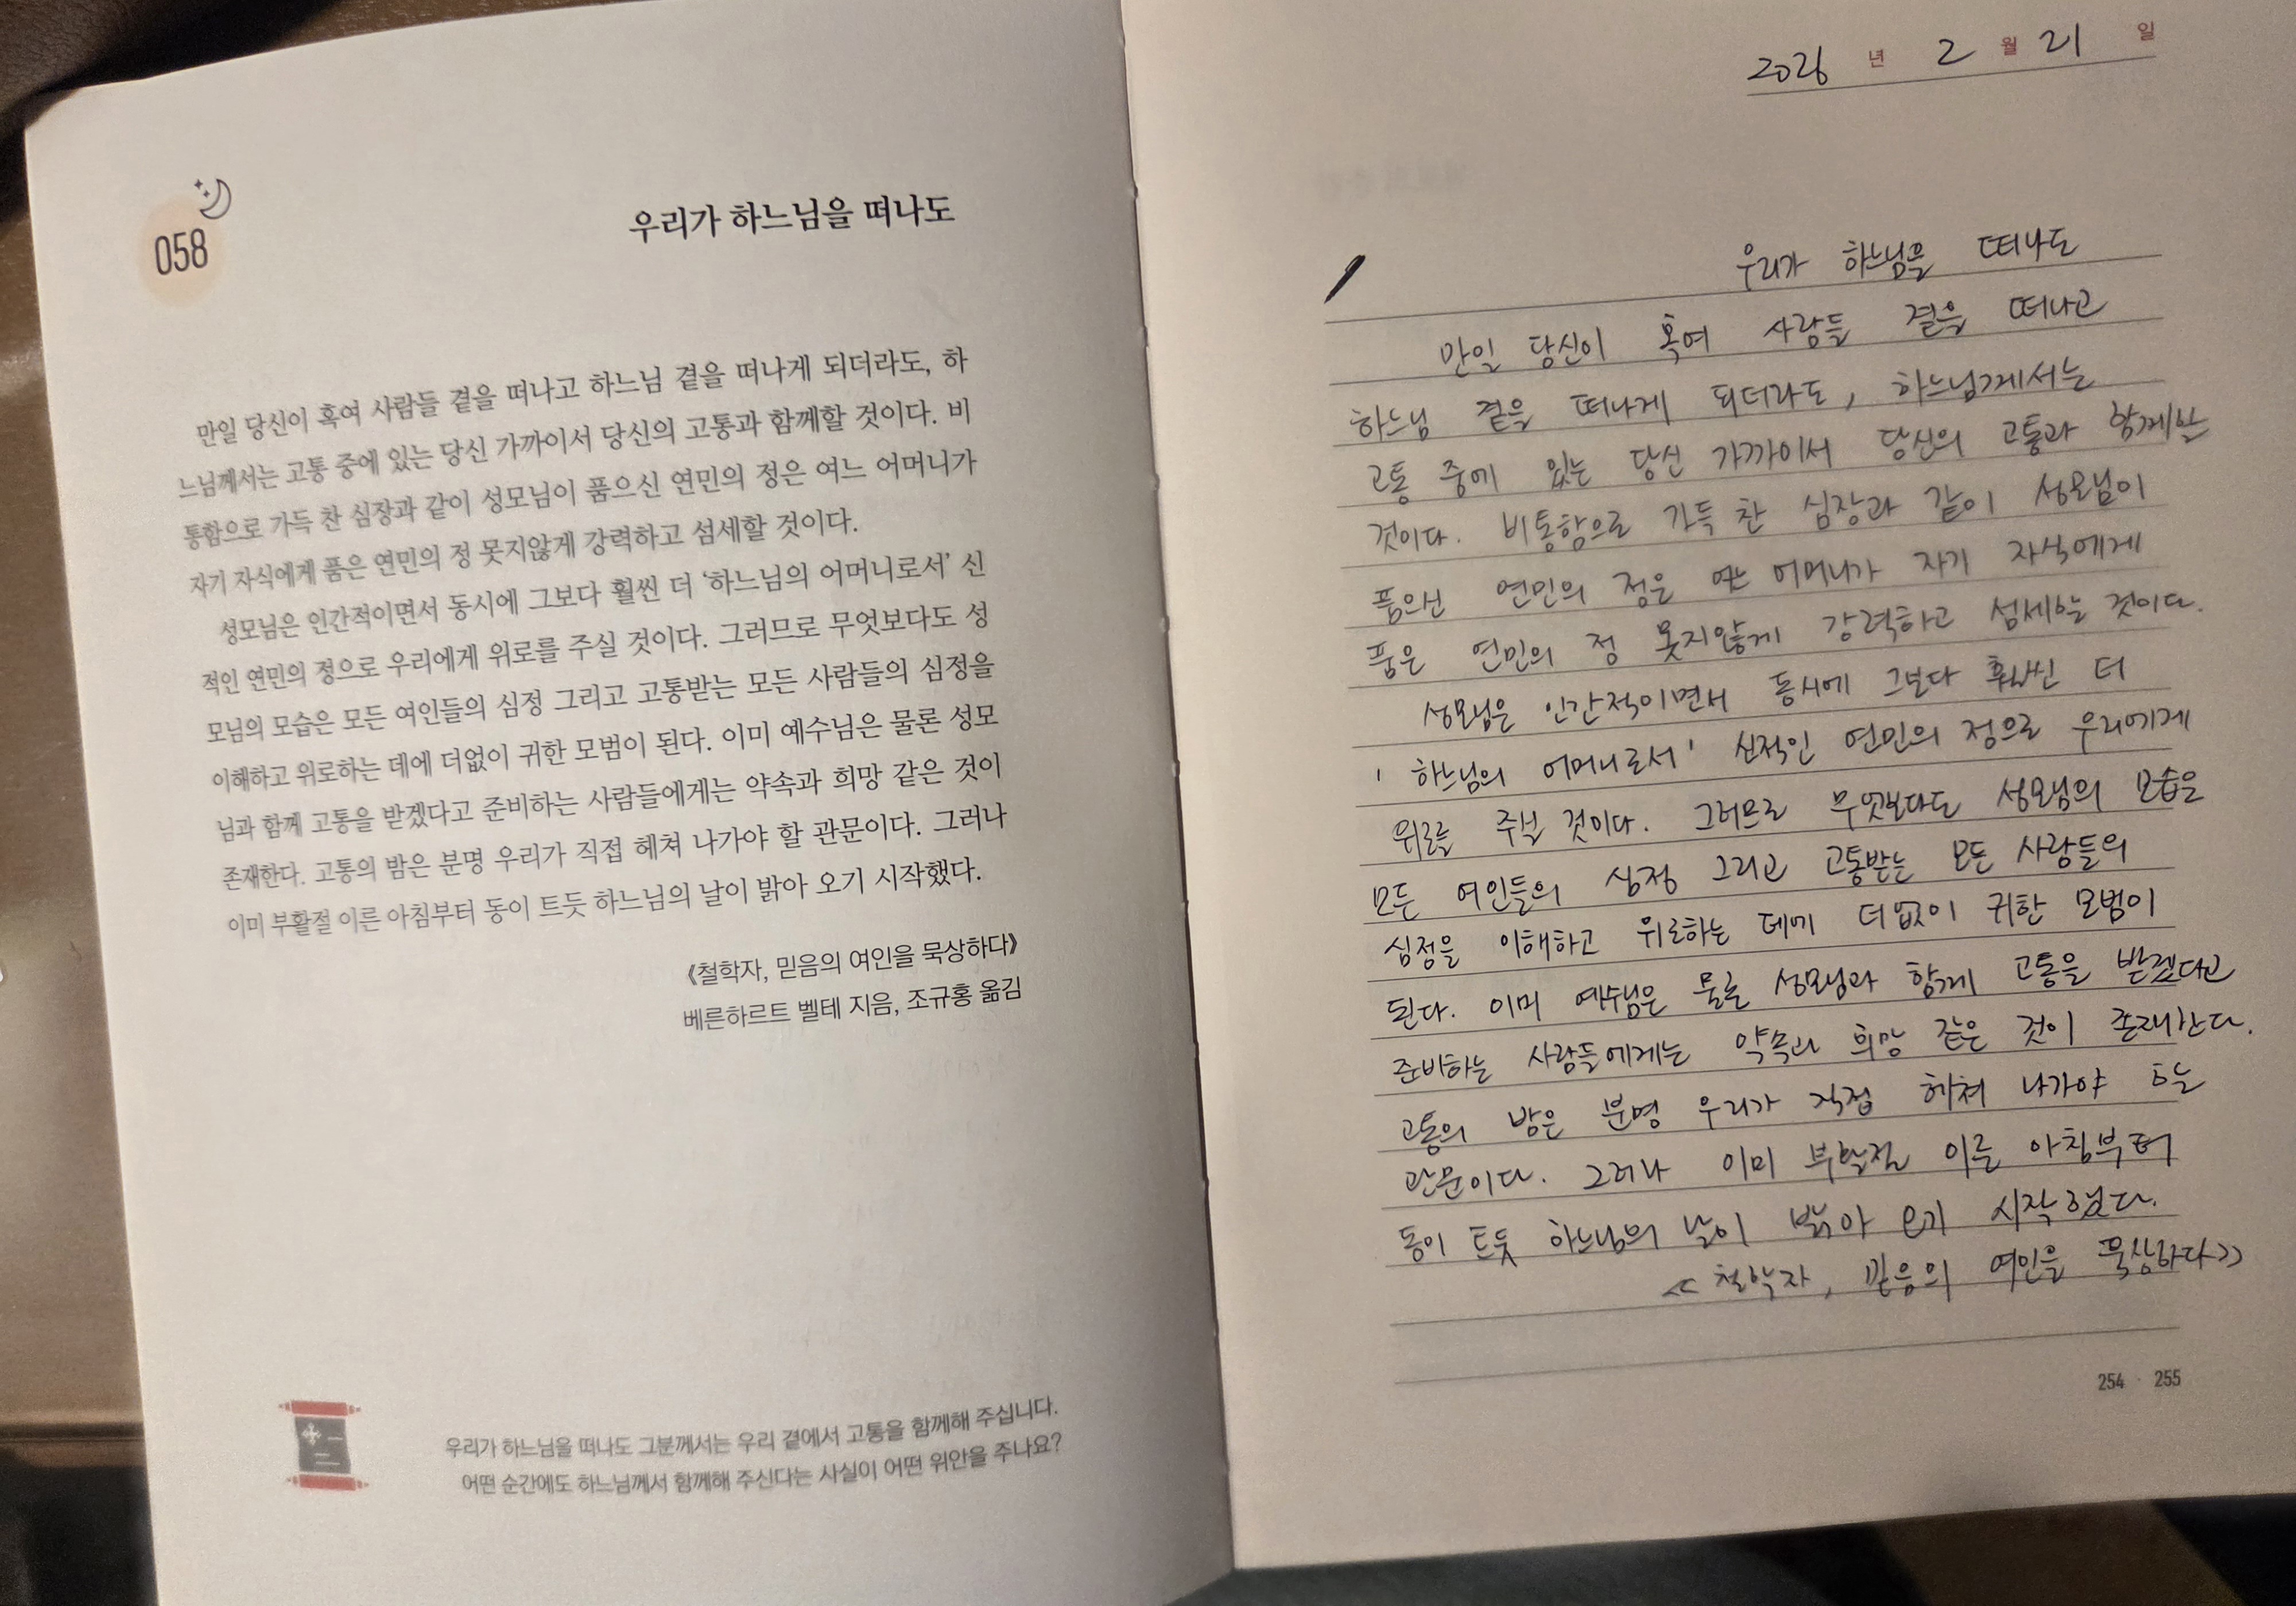 058
우리가 하느님을 떠나도
만일 당신이 혹여 사람들 곁을 떠나고 하느님 곁을 떠나게 되더라도, 하
느님께서는 고통 중에 있는 당신 가까이서 당신의 고통과 함께할 것이다. 비
통함으로 가득 찬 심장과 같이 성모님이 품으신 연민의 정은 여느 어머니가
자기 자식에게 품은 연민의 정 못지않게 강력하고 섬세할 것이다.
성모님은 인간적이면서 동시에 그보다 훨씬 더 ‘하느님의 어머니로서’ 신
적인 연민의 정으로 우리에게 위로를 주실 것이다. 그러므로 무엇보다도 성
모님의 모습은 모든 여인들의 심정 그리고 고통받는 모든 사람들의 심정을
이해하고 위로하는 데에 더없이 귀한 모범이 된다. 이미 예수님은 물론 성모
님과 함께 고통을 받겠다고 준비하는 사람들에게는 약속과 희망 같은 것이
존재한다. 고통의 밤은 분명 우리가 직접 헤쳐 나가야 할 관문이다. 그러나
이미 부활절 이른 아침부터 동이 트듯 하느님의 날이 밝아 오기 시작했다.
《철학자, 믿음의 여인을 묵상하다》
베른하르트 벨테 지음, 조규홍 옮김
우리가 하느님을 떠나도 그분께서는 우리 곁에서 고통을 함께해 주십니다.
어떤 순간에도 하느님께서 함께해 주신다는 사실이 어떤 위안을 주나요?
2026 년 2 월 21 일
우리가 하느님을 떠나도
만일 당신이 혹여 사람들 곁을 떠나고
하느님 곁을 떠나게 되더라도, 하느님께서는
고통 중에 있는 당신 가까이서 당신의 고통과 함께할
것이다. 비통함으로 가득 찬 심장과 같이 성모님이
품으신 연민의 정은 어머니가 자기 자식에게
품은 연민의 정 못지않게 강력하고 섬세할 것이다.
성모님은 인간적이면서 동시에 그보다 훨씬 더
'하느님의 어머니로서' 신적인 연민의 정으로 우리에게
위로를 주실 것이다. 그러므로 무엇보다도 성모님의 모습은
모든 여인들의 심정 그리고 고통받는 모든 사람들의
심정을 이해하고 위로하는 데에 더없이 귀한 모범이
된다. 이미 예수님은 물론 성모님과 함께 고통을 받겠다고
준비하는 사람들에게는 약속과 희망 같은 것이 존재한다.
고통의 밤은 분명 우리가 직접 헤쳐 나가야 할
관문이다. 그러나 이미 부활절 이른 아침부터
동이 트듯 하느님의 날이 밝아 오기 시작했다.
<<철학자, 믿음의 여인을 묵상하다>>
254 · 255